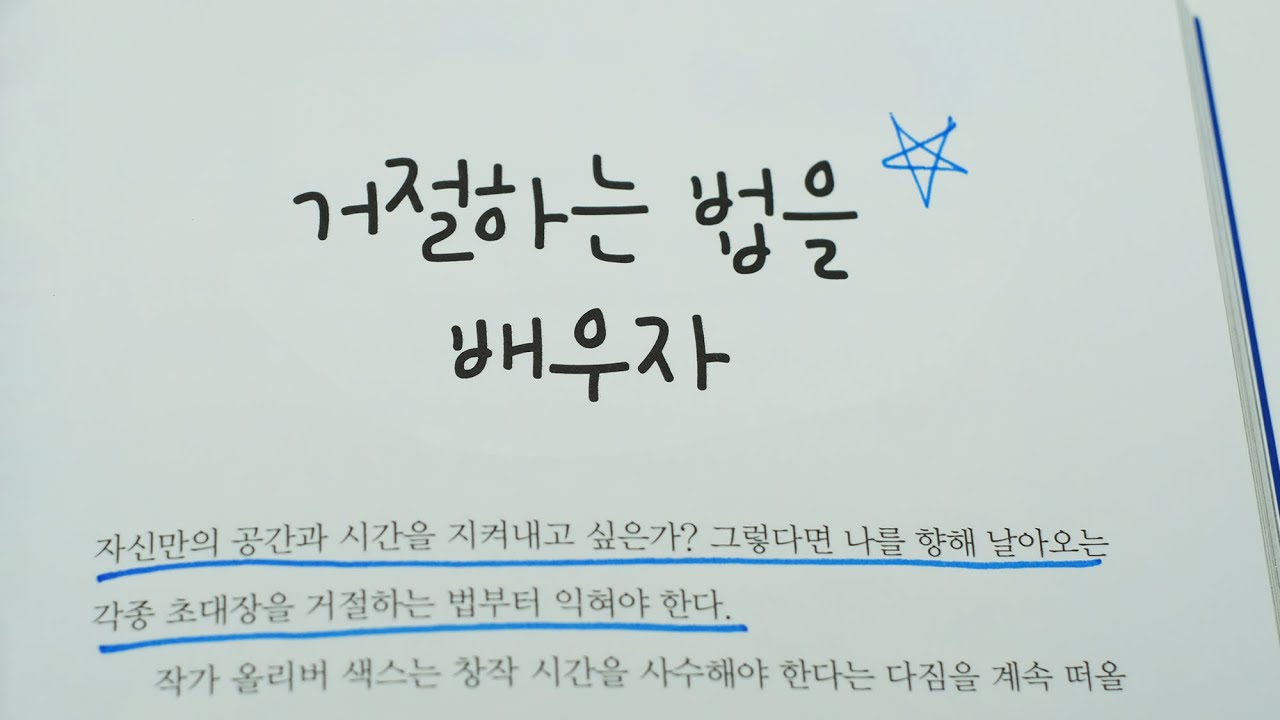 거절하는 법을
배우자
자신만의 공간과 시간을 지켜내고 싶은가? 그렇다면 나를 향해 날아오는
각종 초대장을 거절하는 법부터 익혀야 한다.
작가 올리버 색스는 창작 시간을 사수해야 한다는 다짐을 계속 떠올